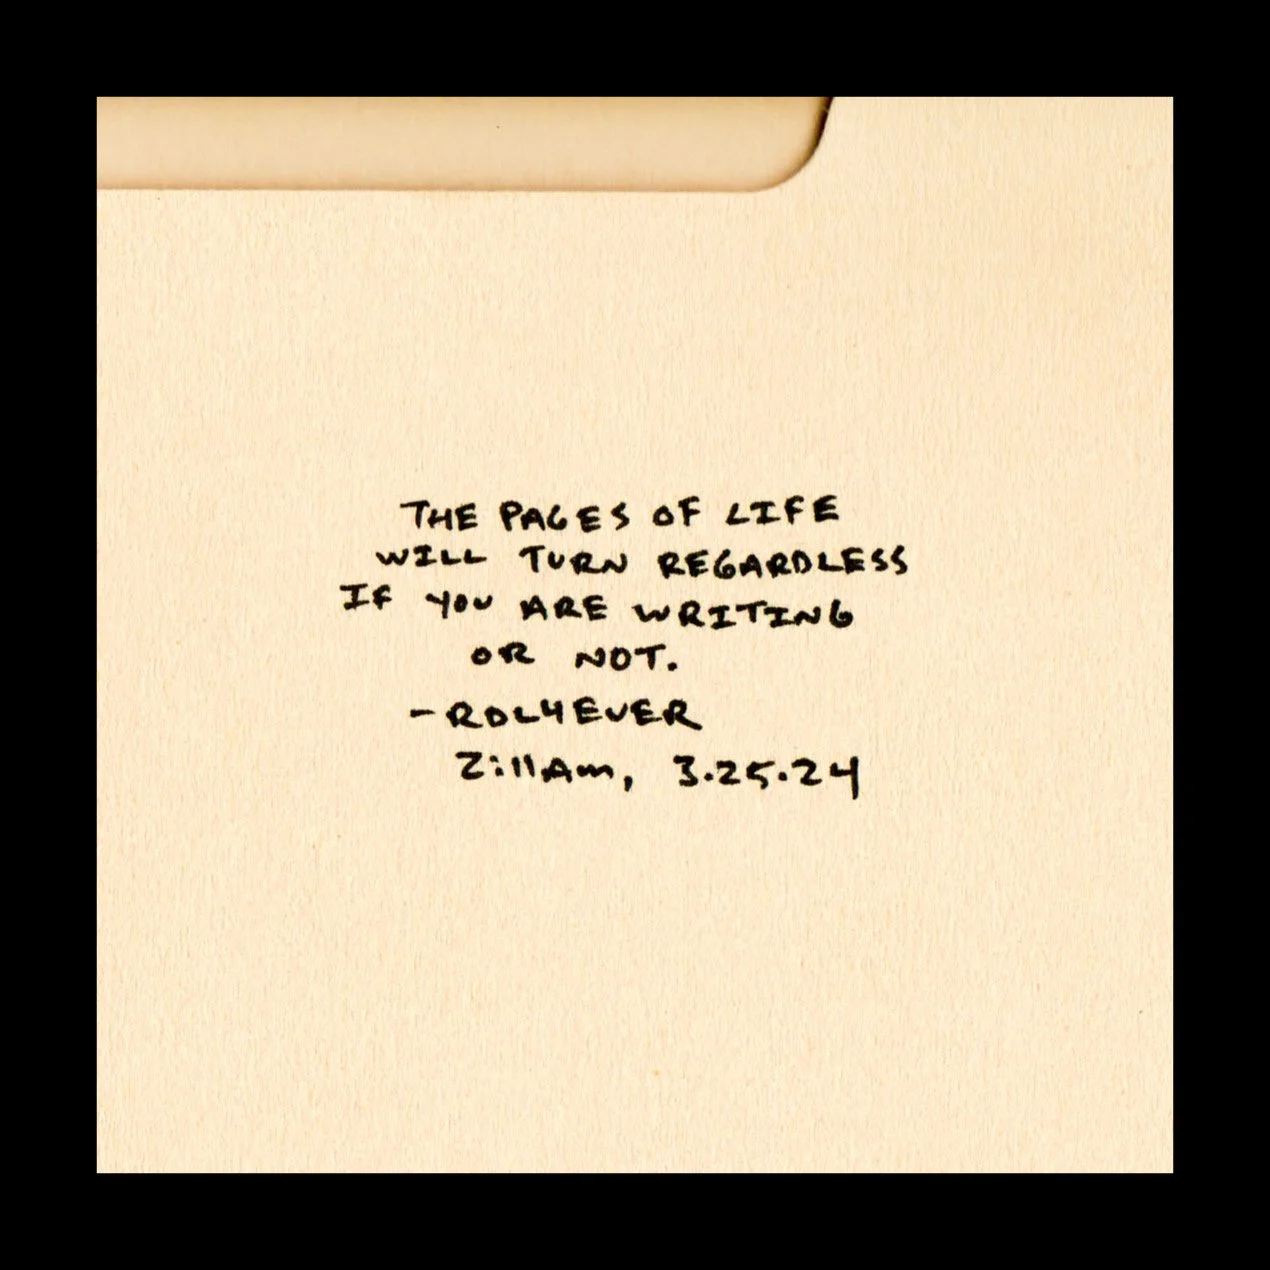 THE PAGES OF LIFE
WILL TURN REGARDLESS
IF YOU ARE WRITING
OR NOT.
-RDL4EVER
ZillAm, 3.25.24